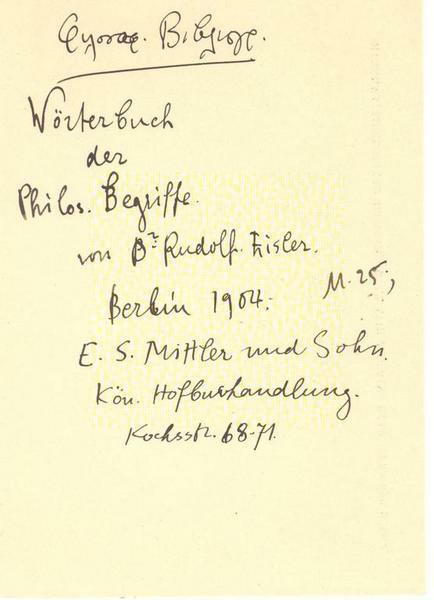 Φιλοσοφ. Βιβλιογρ.
Wörterbuch
der
Philos. Begriffe.
von Dr Rudolf. Eisler.
Berlin 1904. M. 25,
E. S. Mittler und Sohn.
Kön. Hofbuchhandlung.
Kochsstr. 68-71.